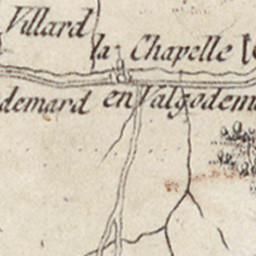 Villard
la Chapelle
demard en Valgodem